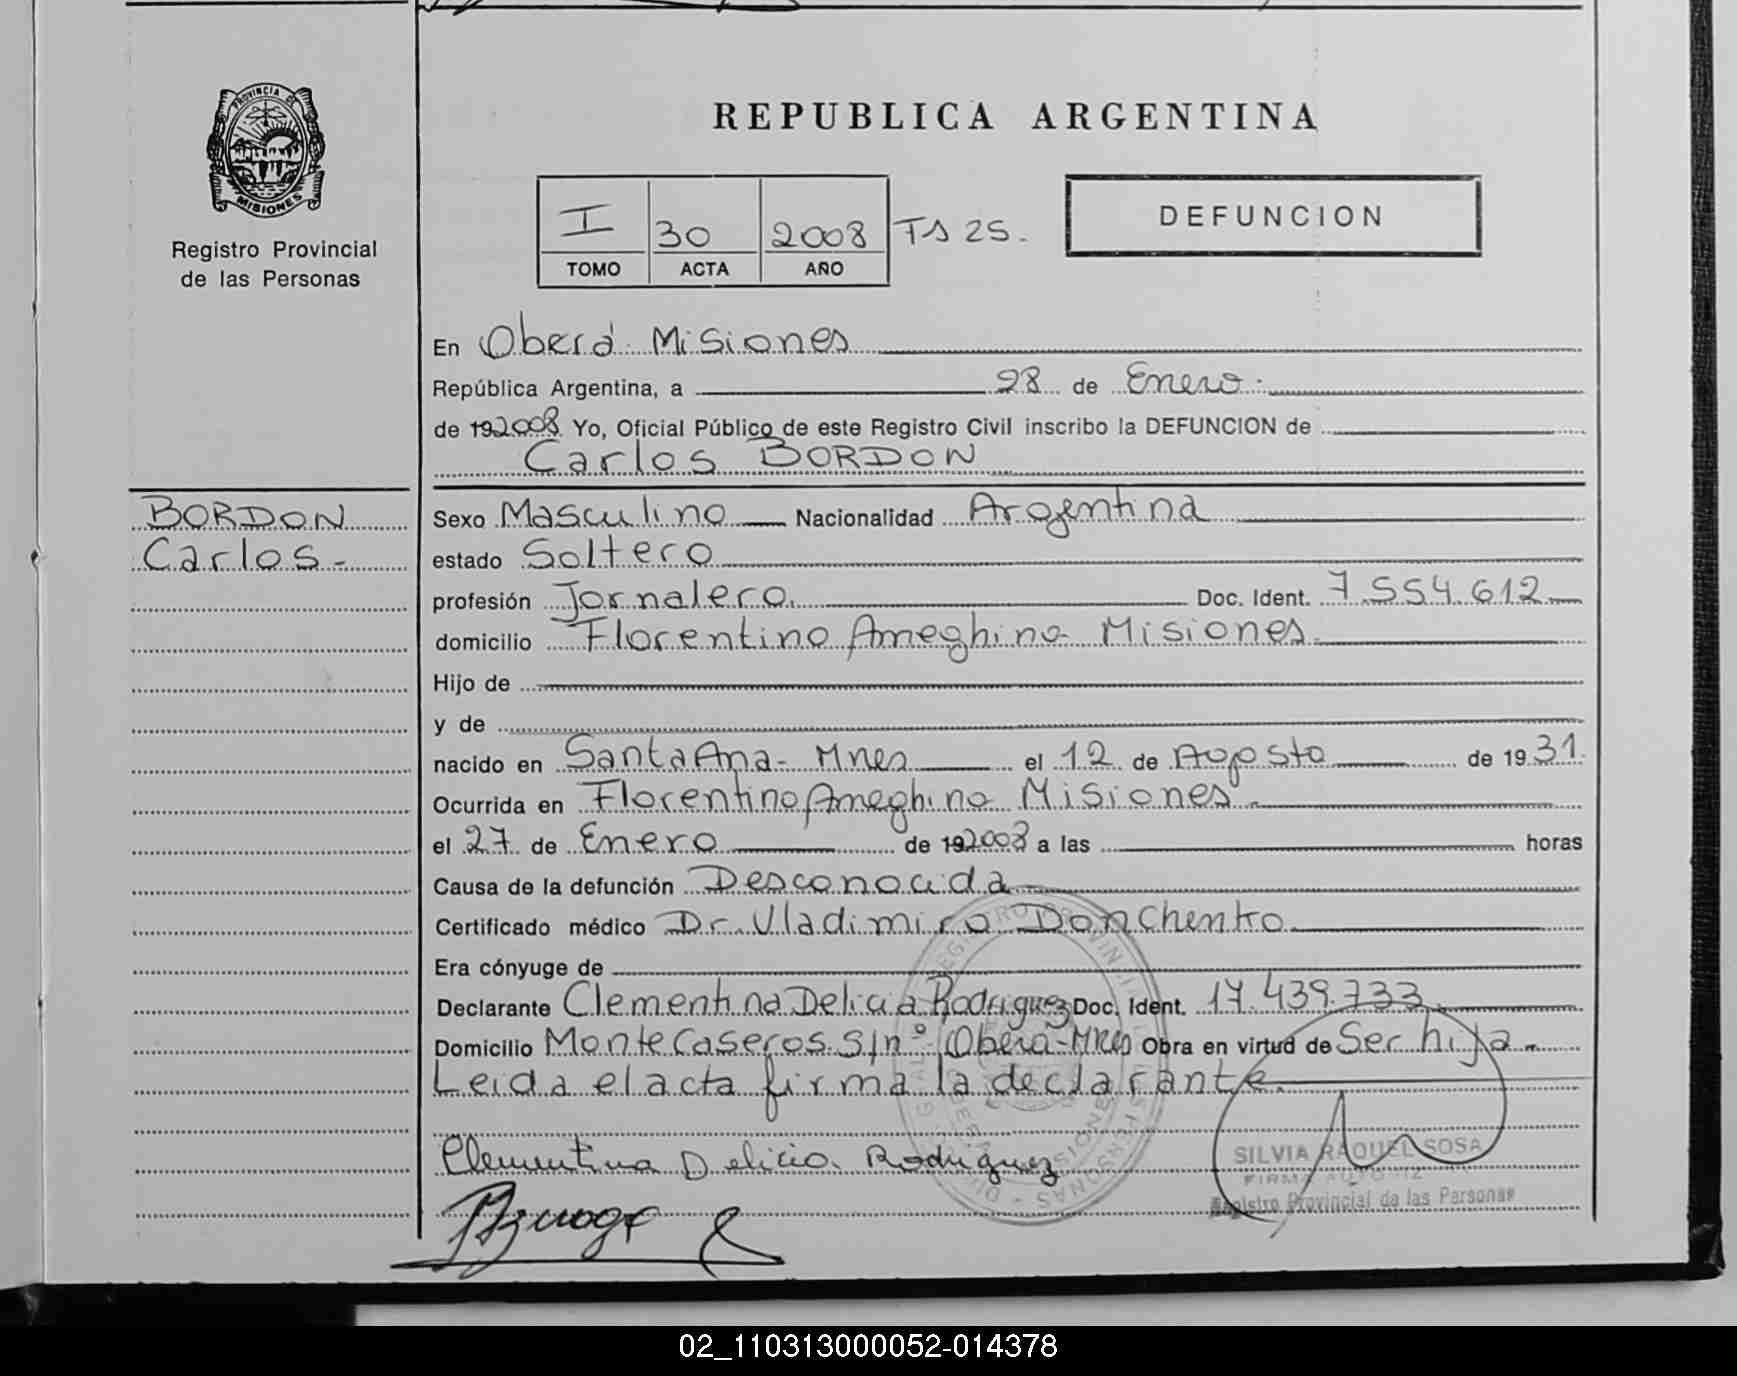 PROVINCIA DE
MISIONES
Registro Provincial
de las Personas
REPUBLICA ARGENTINA
I 30 2008 TS 25.
TOMO ACTA AÑO
DEFUNCION
En Oberá Misiones
República Argentina, a 28 de Enero.
de 192008 Yo, Oficial Público de este Registro Civil inscribo la DEFUNCION de
Carlos BORDON
BORDON
Carlos-
Sexo Masculino Nacionalidad Argentina
estado Soltero
profesión Jornalero. Doc. Ident. 7.554.612
domicilio Florentino Ameghino Misiones.
Hijo de
y de
nacido en Santa Ana- Mnes el 12 de Agosto de 1931.
Ocurrida en Florentino Ameghino Misiones
el 27 de Enero de 192008 a las horas
Causa de la defunción Desconocida
Certificado médico Dr. Vladimiro Donchenko
Era cónyuge de
Declarante Clementina Delicia Rodriguez Doc. Ident. 17.439.733
Domicilio Monte Caseros S/nº Oberá-Mnes Obra en virtud de Ser hija.
Leida el acta firma la declarante.
Clementina Delicia Rodriguez
SILVIA RAQUEL SOSA
Registro Provincial de las Personas
02_110313000052-014378